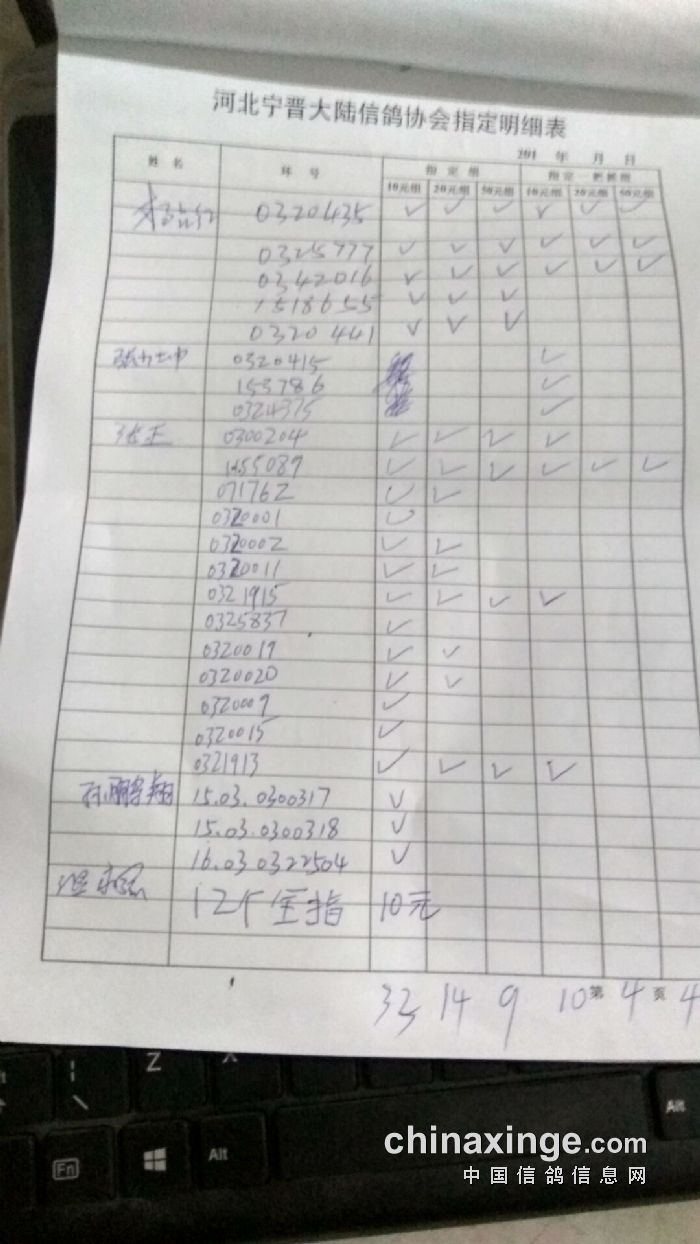 河北宁晋大陆信鸽协会指定明细表
201 年 月 日
姓名 环号 指定组 指定一把抓组
10元组 20元组 50元组 10元组 20元组 50元组
0320435 ✓ ✓ ✓ ✓ ✓ ✓
0325777 ✓ ✓ ✓ ✓ ✓ ✓
0342016 ✓ ✓ ✓ ✓ ✓ ✓
1518655 ✓ ✓ ✓
0320441 ✓ ✓ ✓
0320415 ✓
153786 ✓
0324375 ✓
张正 0300204 ✓ ✓ ✓ ✓
✓ ✓ ✓ ✓ ✓ ✓
071762 ✓ ✓
0320001 ✓
0320002 ✓ ✓
0320011 ✓ ✓
0321915 ✓ ✓ ✓ ✓
0325837 ✓
0320019 ✓ ✓
0320020 ✓ ✓
0320009 ✓
0320015 ✓
0321913 ✓ ✓ ✓ ✓
15.03.0300317 ✓
15.03.0300318 ✓
16.03.0322504 ✓
12个全指 10元
33 14 9 10 第 4 页 4
Z X
Fn Alt Alt
chinaxinge.com
中国信鸽信息网